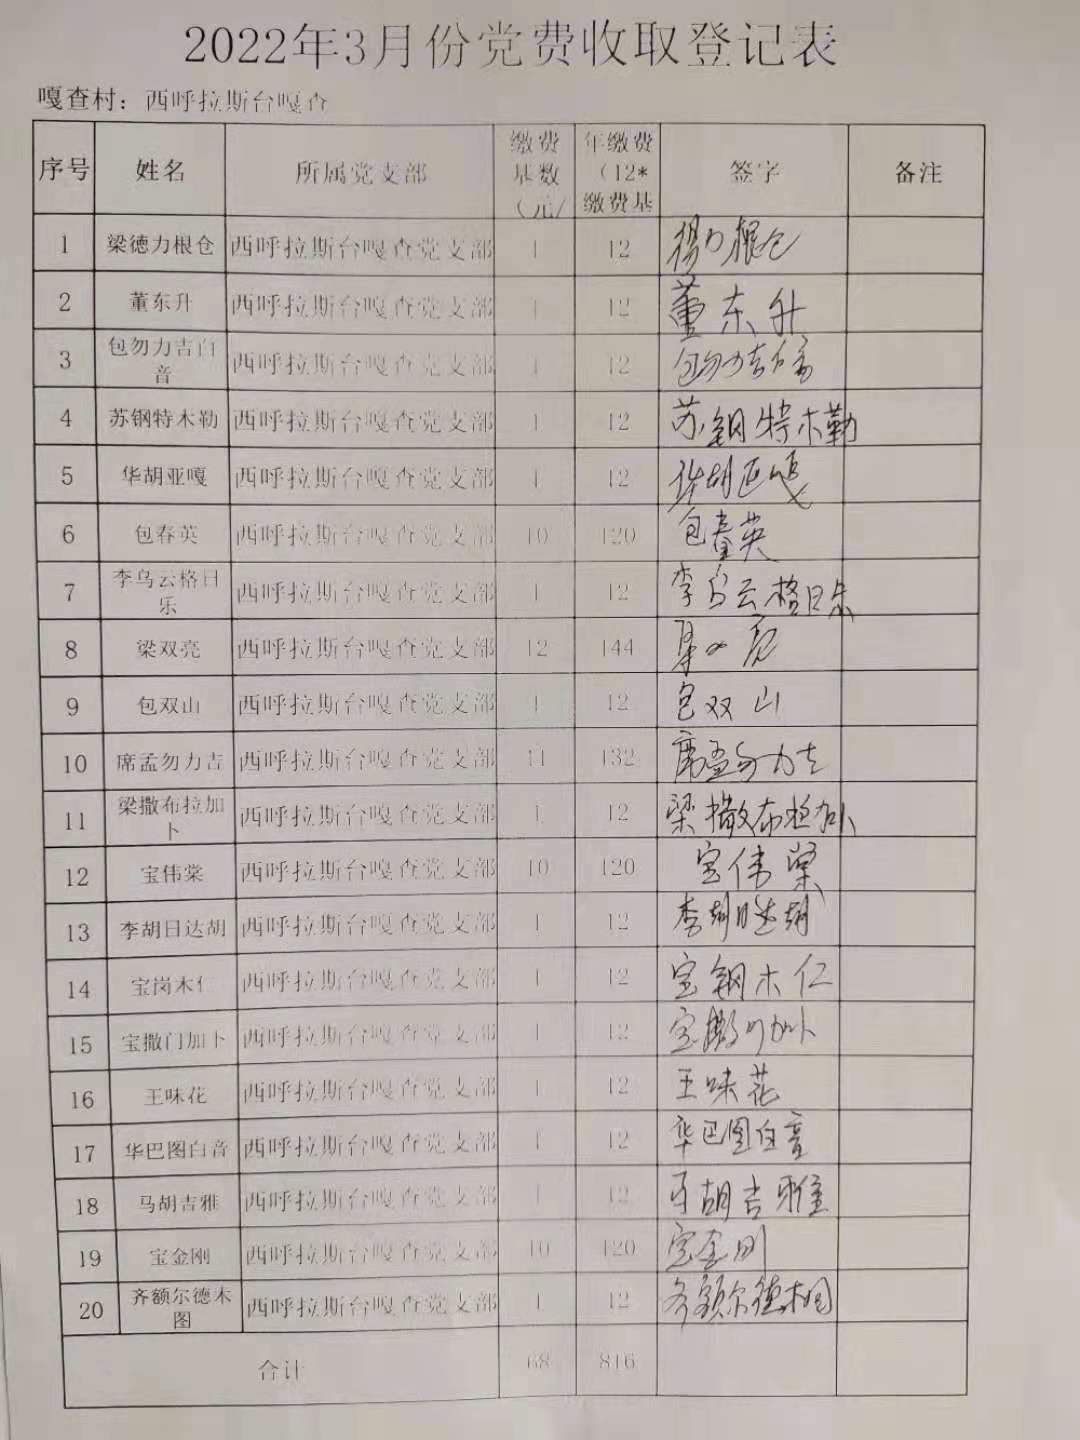 2022年3月份党费收取登记表
嘎查村：西呼拉斯台嘎查
序号 姓名 所属党支部 缴费基数（元/ 年缴费（12*缴费基 签字 备注
1 梁德力根仓 西呼拉斯台嘎查党支部 1 12 力根仓
2 董东升 西呼拉斯台嘎查党支部 1 12 董东升
3 包勿力吉白音 西呼拉斯台嘎查党支部 1 12 包勿力吉白音
4 苏钢特木勒 西呼拉斯台嘎查党支部 1 12 苏钢特木勒
5 华胡亚嘎 西呼拉斯台嘎查党支部 1 12 华胡亚嘎
6 包春英 西呼拉斯台嘎查党支部 10 120 包春英
7 李乌云格日乐 西呼拉斯台嘎查党支部 1 12 李乌云格日乐
8 梁双亮 西呼拉斯台嘎查党支部 12 144 梁双亮
9 包双山 西呼拉斯台嘎查党支部 1 12 包双山
10 席孟勿力吉 西呼拉斯台嘎查党支部 11 132 席孟勿力吉
11 梁撒布拉加卜 西呼拉斯台嘎查党支部 1 12 梁撒布拉加卜
12 宝伟棠 西呼拉斯台嘎查党支部 10 120 宝伟棠
13 李胡日达胡 西呼拉斯台嘎查党支部 1 12 李胡日达胡
14 宝岗木仁 西呼拉斯台嘎查党支部 1 12 宝钢木仁
15 宝撒门加卜 西呼拉斯台嘎查党支部 1 12 宝撒门加卜
16 王味花 西呼拉斯台嘎查党支部 1 12 王味花
17 华巴图白音 西呼拉斯台嘎查党支部 1 12 华巴图白音
18 马胡吉雅 西呼拉斯台嘎查党支部 1 12 马胡吉雅
19 宝金刚 西呼拉斯台嘎查党支部 10 120 宝金刚
20 齐额尔德木图 西呼拉斯台嘎查党支部 1 12 齐额尔德木图
合计 68 816